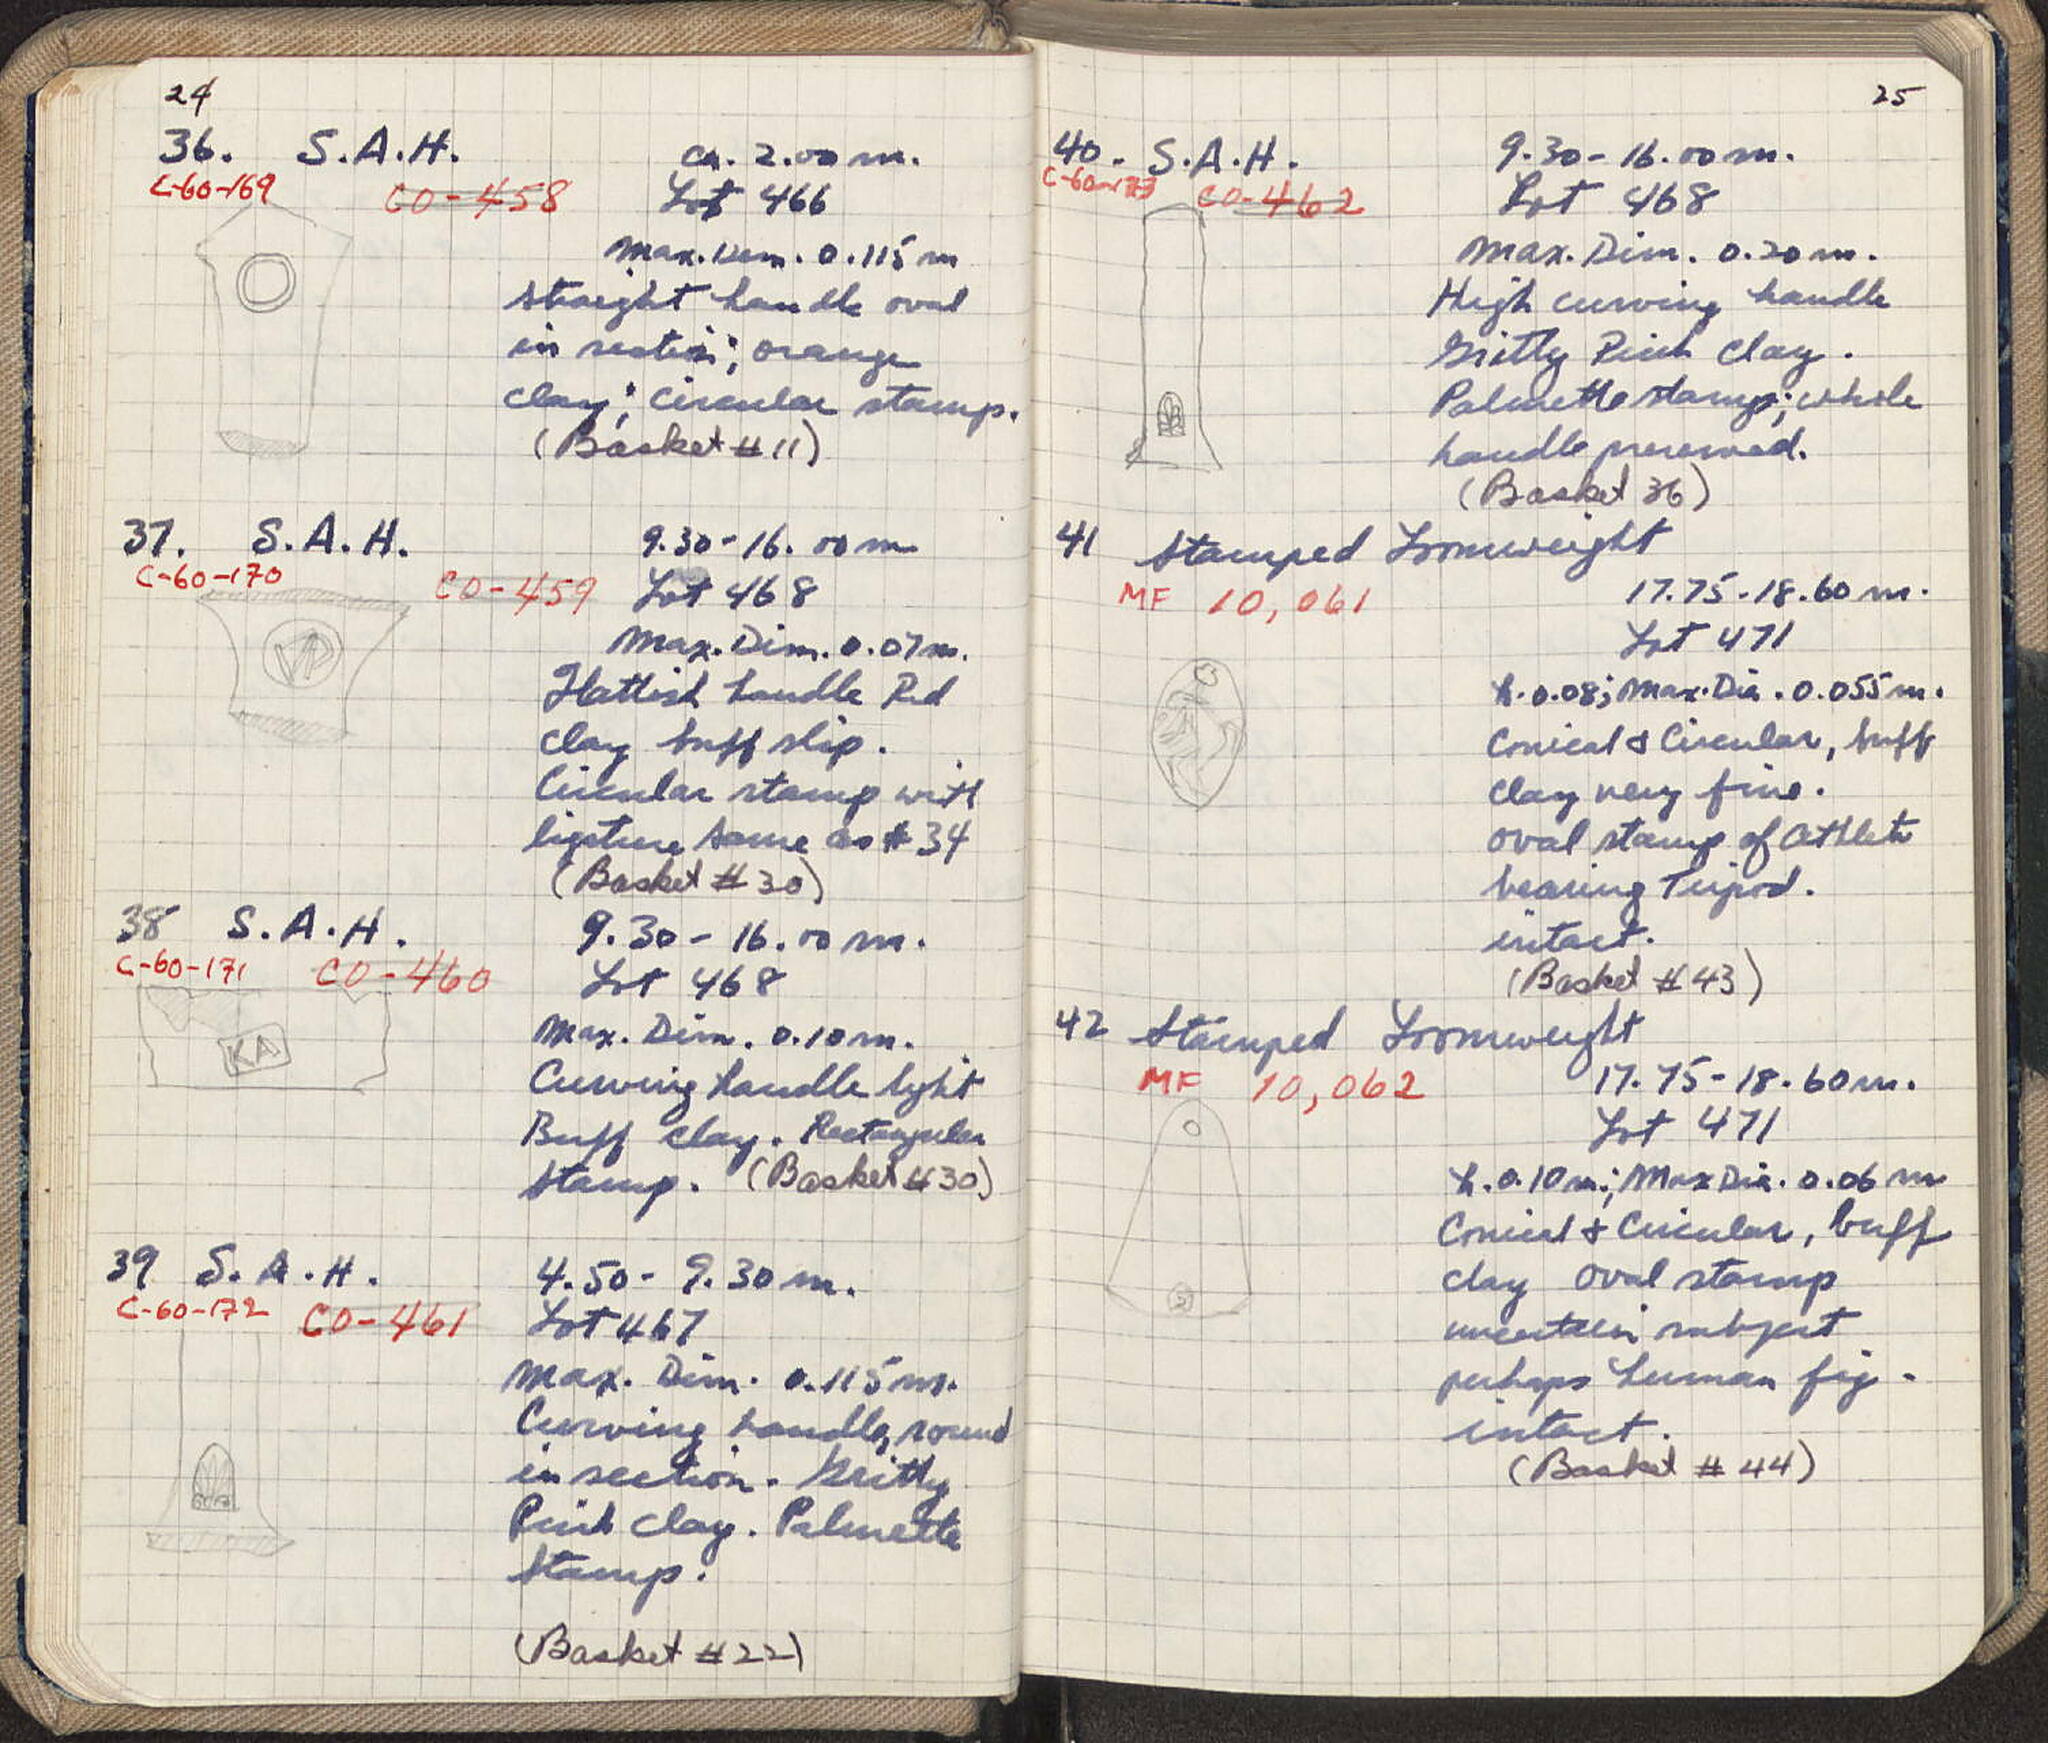 24
36. S.A.H. ca. 2.00 m.
C-60-169 CO-458 Lot 466
Max. Dim. 0.115 m
Straight handle oval
in section; orange
clay; circular stamp.
(Basket #11)
37. S.A.H. 9.30-16.00 m
C-60-170 CO-459 Lot 468
Max. Dim. 0.07 m.
Flattish handle Red
clay buff slip.
Circular stamp with
ligature same as #34
(Basket #30)
38 S.A.H. 9.30-16.00 m.
C-60-171 CO-460 Lot 468
KA
Max. Dim. 0.10 m.
Curving handle light
Buff clay. Rectangular
stamp. (Basket #30)
39 S.A.H. 4.50-9.30 m.
C-60-172 CO-461 Lot 467
Max. Dim. 0.115 m.
Curving handle, round
in section. Gritty
Pink clay. Palmette
stamp.
(Basket #22)
25
40. S.A.H. 9.30-16.00 m.
C-60-173 CO-462 Lot 468
Max. Dim. 0.20 m.
High curving handle
Gritty Pink clay.
Palmette stamp; whole
handle preserved.
(Basket 36)
41 Stamped Loomweight
MF 10,061 17.75-18.60 m.
Lot 471
h. 0.08; Max. Dia. 0.055 m.
Conical & Circular, buff
clay very fine.
oval stamp of athlete
bearing Tripod.
intact.
(Basket #43)
42 Stamped Loomweight
MF 10,062 17.75-18.60 m.
Lot 471
h. 0.10 m; Max Dia. 0.06 m
Conical & Circular, buff
clay oval stamp
uncertain subject
perhaps human fig.
intact.
(Basket #44)